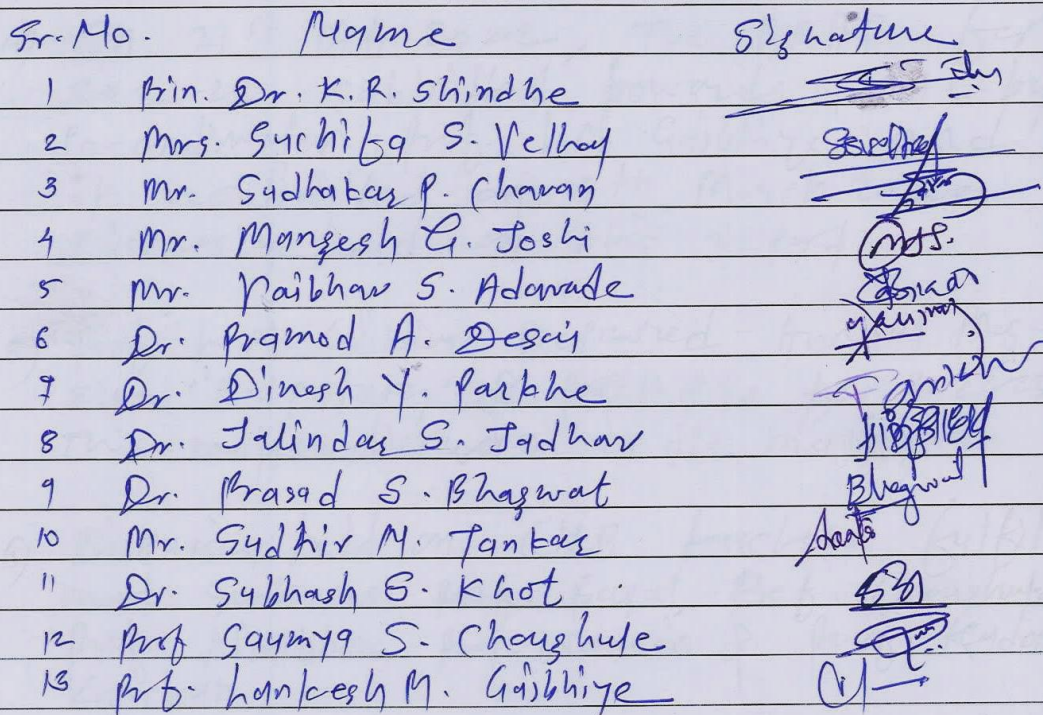 Sr. No. Name Signature
1 Prin. Dr. K. R. Shindhe
2 Mrs. Suchita S. Velhal
3 Mr. Sudhakar P. Chavan
4 Mr. Mangesh G. Joshi
5 Mr. Vaibhav S. Adavade
6 Dr. Pramod A. Desai
7 Dr. Dinesh Y. Parkhe
8 Dr. Jalindar S. Jadhav
9 Dr. Prasad S. Bhagwat Bhagwat
10 Mr. Sudhir M. Tankar
11 Dr. Subhash S. Khot
12 Prof Saumya S. Chougule
13 Prof. Lankesh M. Gajbhiye